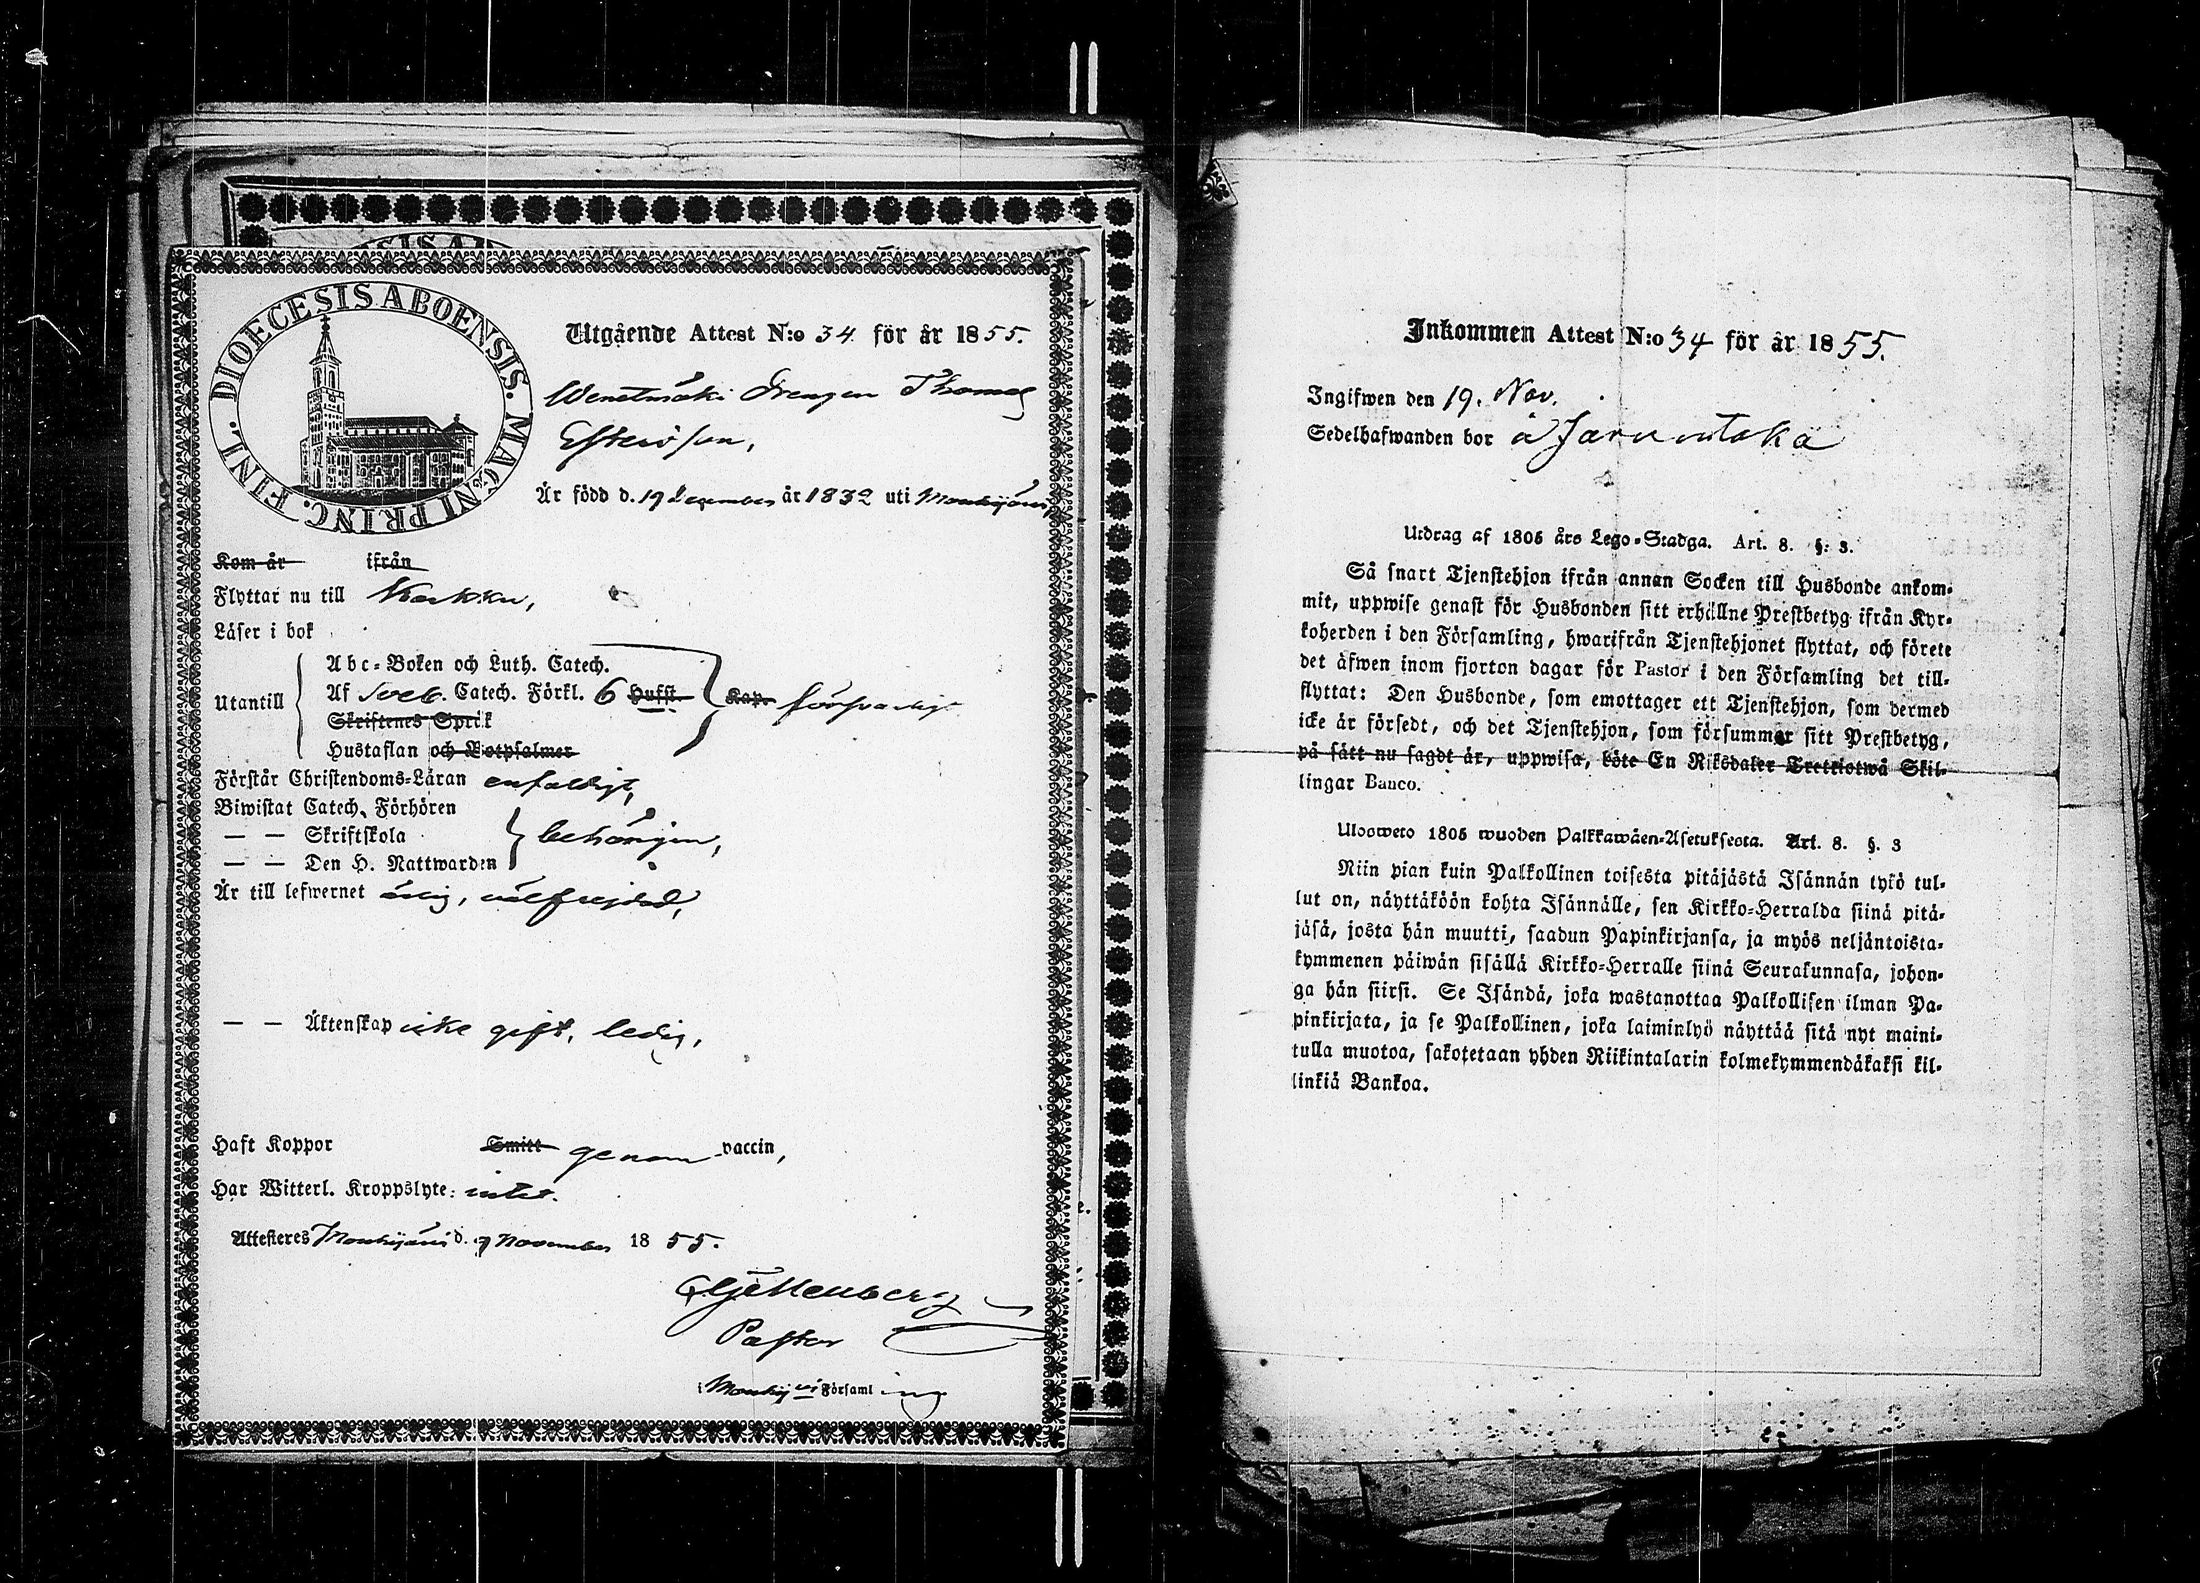 DIOECESIS ABOENSIS. MAGNI PRINC. FINL.
Utgående Attest N:o 34 för år 1855.
Drengen Thomas
Är född d. 19 December år 1832 uti Mouhijärvi
Kom år ifrån
Flyttar nu till Karkku,
Läser i bok
Utantill
Abc-Boken och Luth. Catech.
Af Sveb. Catech. Förkl. 6 Hufst. Kap. försvarligt
Skriftenes Språk
Hustaflan och Botpsalmer
Förstår Christendoms-Läran enfaldigt,
Biwistat Catech. Förhören
— — Skriftskola behörigen,
— — Den H. Nattwarden
Är till lefwernet ärlig, välfrejdad,
— — Äktenskap icke gift, ledig,
Haft Koppor Smitt genom vaccin,
Har Witterl. Kroppslyte: intet.
Attesteres Mouhijärvi d. 9 November 1855.
Pastor
i Mouhijärvi Församling
Inkommen Attest N:o 34 för år 1855.
Ingifwen den 19. Nov.
Sedelhafwanden bor å
Utdrag af 1805 års Lego-Stadga. Art. 8. §: 3.
Så snart Tjenstehjon ifrån annan Socken till Husbonde ankom-
mit, uppwise genast för Husbonden sitt erhållne Prestbetyg ifrån Kyr-
koherden i den Församling, hwarifrån Tjenstehjonet flyttat, och förete
det äfwen inom fjorton dagar för Pastor i den Församling det till-
flyttat: Den Husbonde, som emottager ett Tjenstehjon, som dermed
icke är försedt, och det Tjenstehjon, som försummar sitt Prestbetyg,
på sätt nu sagdt är, uppwisa, böte En Riksdaler Trettiotwå Skil-
lingar Banco.
Uloosweto 1805 wuoden Palkkawäen-Asetuksesta. Art. 8. §. 3
Niin pian kuin Palkollinen toisesta pitäjästä Isännän tykö tul-
lut on, näyttäköön kohta Isännälle, sen Kirkko-Herralda siinä pitä-
jäsä, josta hän muutti, saadun Papinkirjansa, ja myös neljäntoista-
kymmenen päiwän sisällä Kirkko-Herralle siinä Seurakunnasa, johon-
ga hän siirsi. Se Isändä, joka wastanottaa Palkollisen ilman Pa-
pinkirjata, ja se Palkollinen, joka laiminlyö näyttää sitä nyt maini-
tulla muotoa, sakotetaan yhden Riikintalarin kolmekymmendäkaksi kil-
linkiä Bankoa.